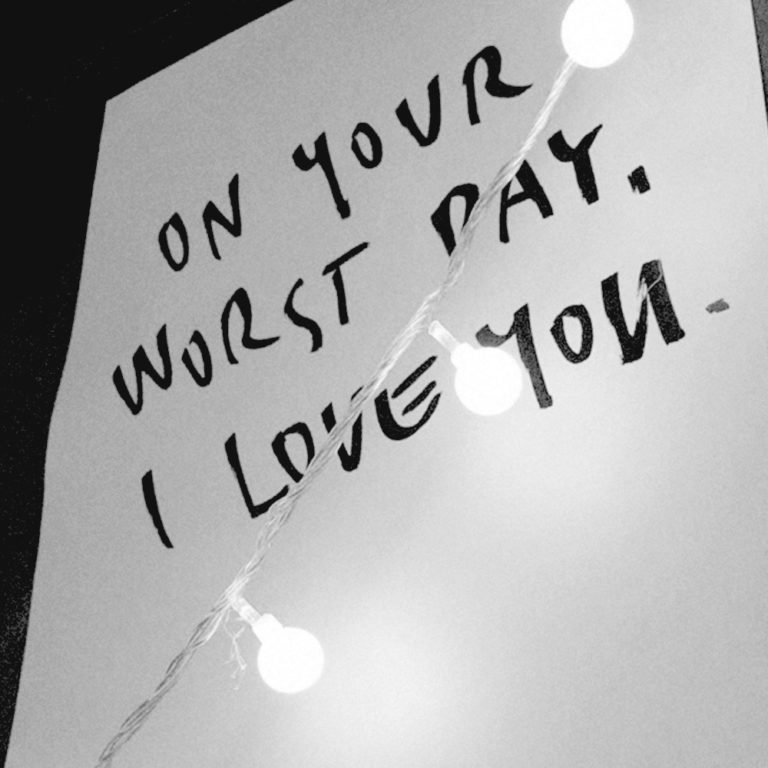 ON YOUR
WORST DAY.
I LOVE YOU.